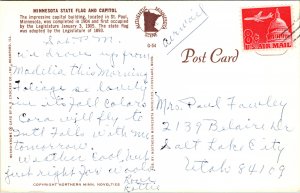 MINNESOTA STATE FLAG AND CAPITOL
The impressive capitol building, located in St. Paul,
Minnesota, was completed in 1904 and first occupied
by the Legislature January 3, 1905. The state flag
was adopted by the Legislature of 1893.
(airmail)
8c
U.S. AIR MAIL
Post Card
Sat P.M.
drove up from
Madelia this morning
Foliage so lovely
in its fall colors
Cora will fly to
Int'l Falls with me
tomorrow.
Weather cool, but
just right for would
Love
Mrs Paul Fawley
2139 Belaire Dr
Salt Lake City
Utah 84109
COPYRIGHT NORTHERN MINN. NOVELTIES